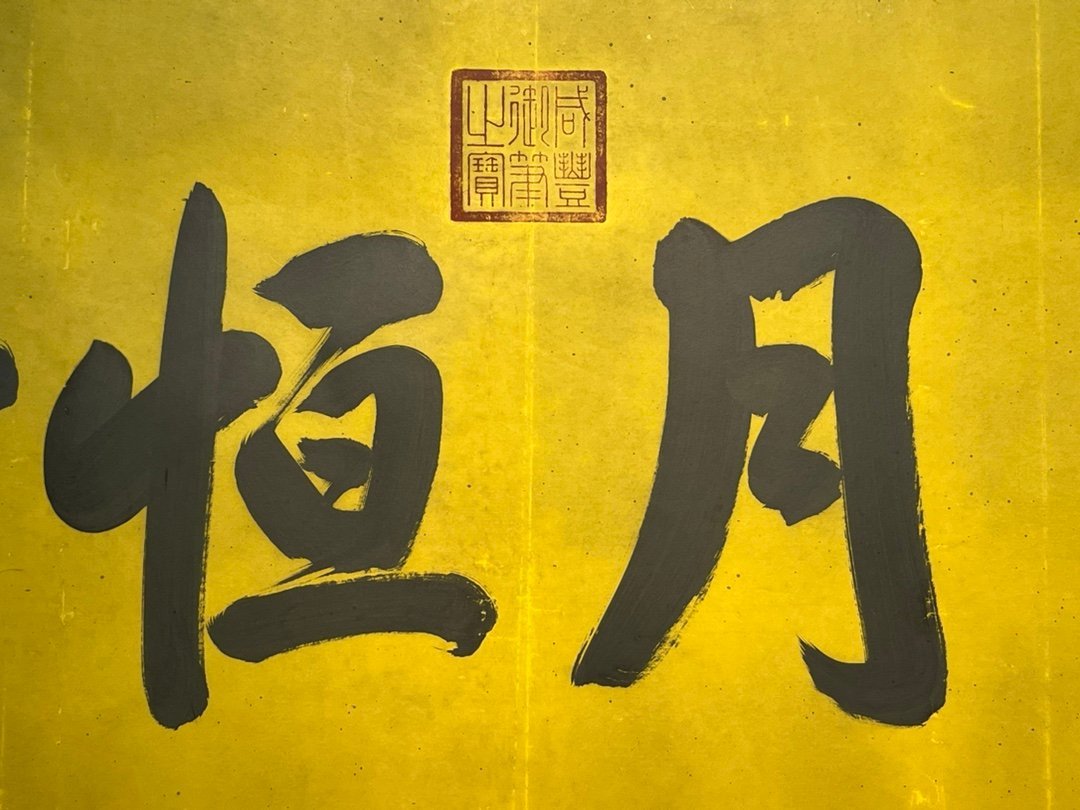 月恒
咸豐御筆之寶